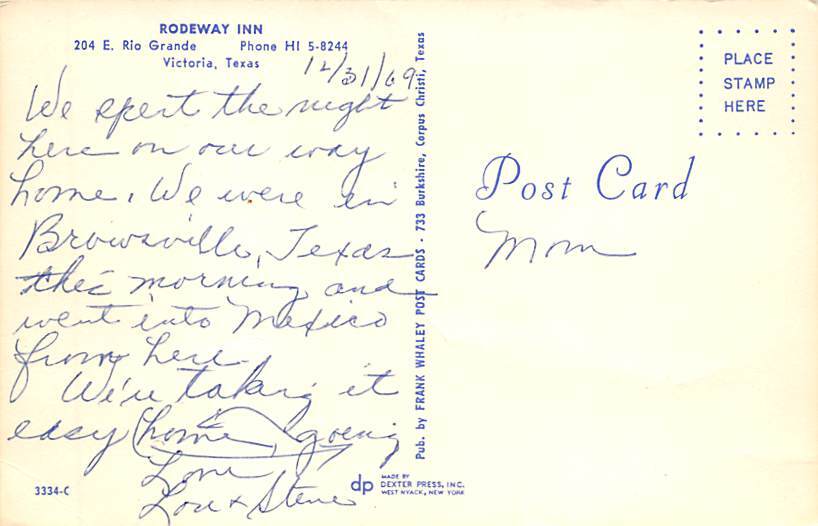 RODEWAY INN
204 E. Rio Grande Phone HI 5-8244
Victoria, Texas
12/31/69
We spent the night
here on our way
home. We were in
Brownsville, Texas
this morning and
went into Mexico
from here.
We're taking it
easy home going
Love
Lou & Steve
3334-C
Pub. by FRANK WHALEY POST CARDS - 733 Burkshire, Corpus Christi, Texas
dp MADE BY
DEXTER PRESS, INC.
WEST NYACK, NEW YORK
PLACE
STAMP
HERE
Post Card
Mom